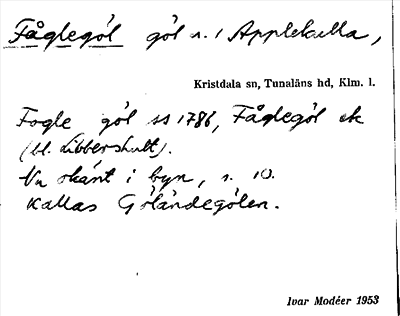 Fåglegöl göl s. i Applekulla,
Kristdala sn, Tunaläns hd, Klm. l.
Fogle göl ss 1786, Fåglegöl ek
(bl. Libbershult).
Nu i byn, s. 10.
Kallas Göländegölen.
Ivar Modéer 1953